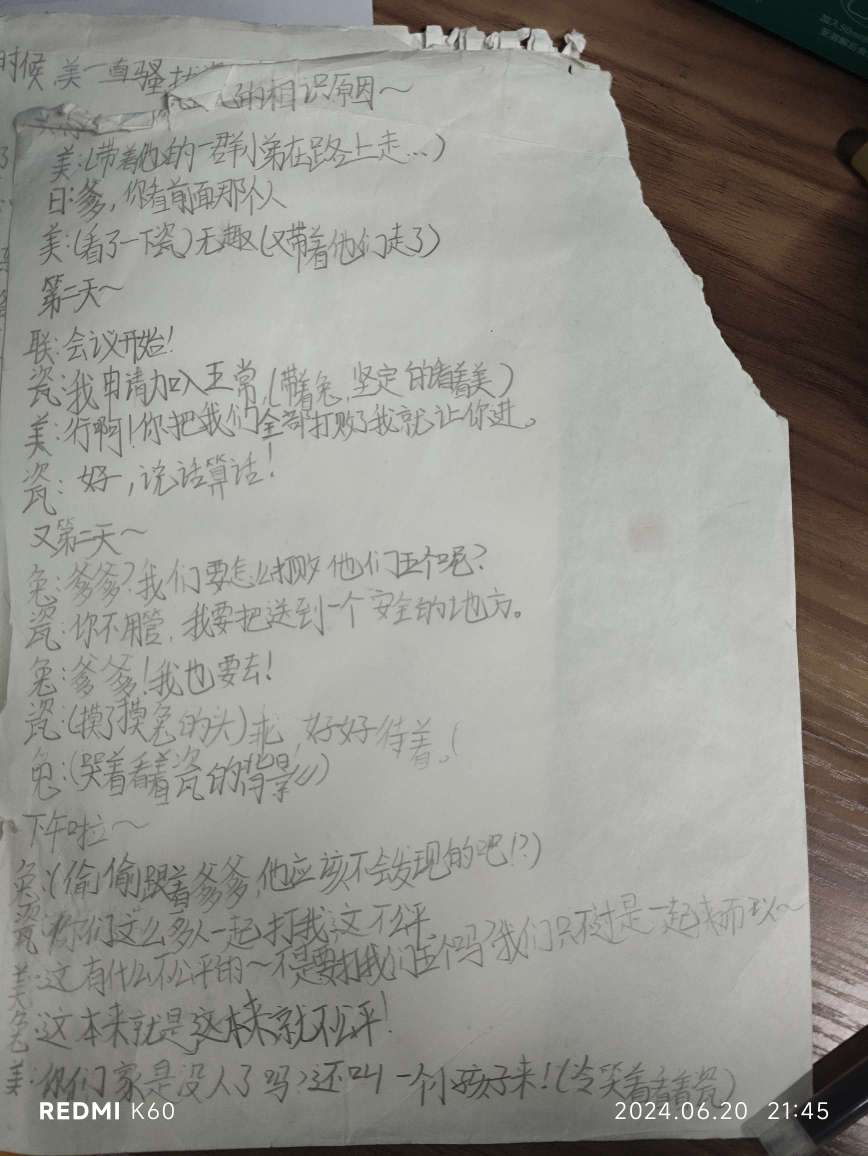 加入50
时候,美一直骚扰
的相识原因~
美:(带着他的一群小弟在路上走...)
日:爹,你看前面那个人
美:(看了一下瓷)无趣(又带着他们走了)
第二天~
联:会议开始!
瓷:我申请加入五常,(带着兔,坚定的看着美)
美:行啊!你把我们全部打败了我就让你进。
瓷:好,说话算话!
又第二天~
兔:爹爹?我们要怎么打败他们五个呢?
瓷:你不用管,我要把送到一个安全的地方。
兔:爹爹!我也要去!
瓷:(摸了摸兔的头)乖,好好待着。(
兔:(哭着看着瓷的背景//)
下午啦~
兔:(偷偷跟着爹爹,他应该不会发现的吧!?)
瓷:你们这么多人一起打我,这不公平
美:这有什么不公平的~不是要打我们五个吗?我们只不过是一起来而以~
兔:这本来就是这本来就不公平!
美:你们家是没人了吗?还叫一个小孩子来!(冷笑着看着瓷)
REDMI K60
2024.06.20 21:45